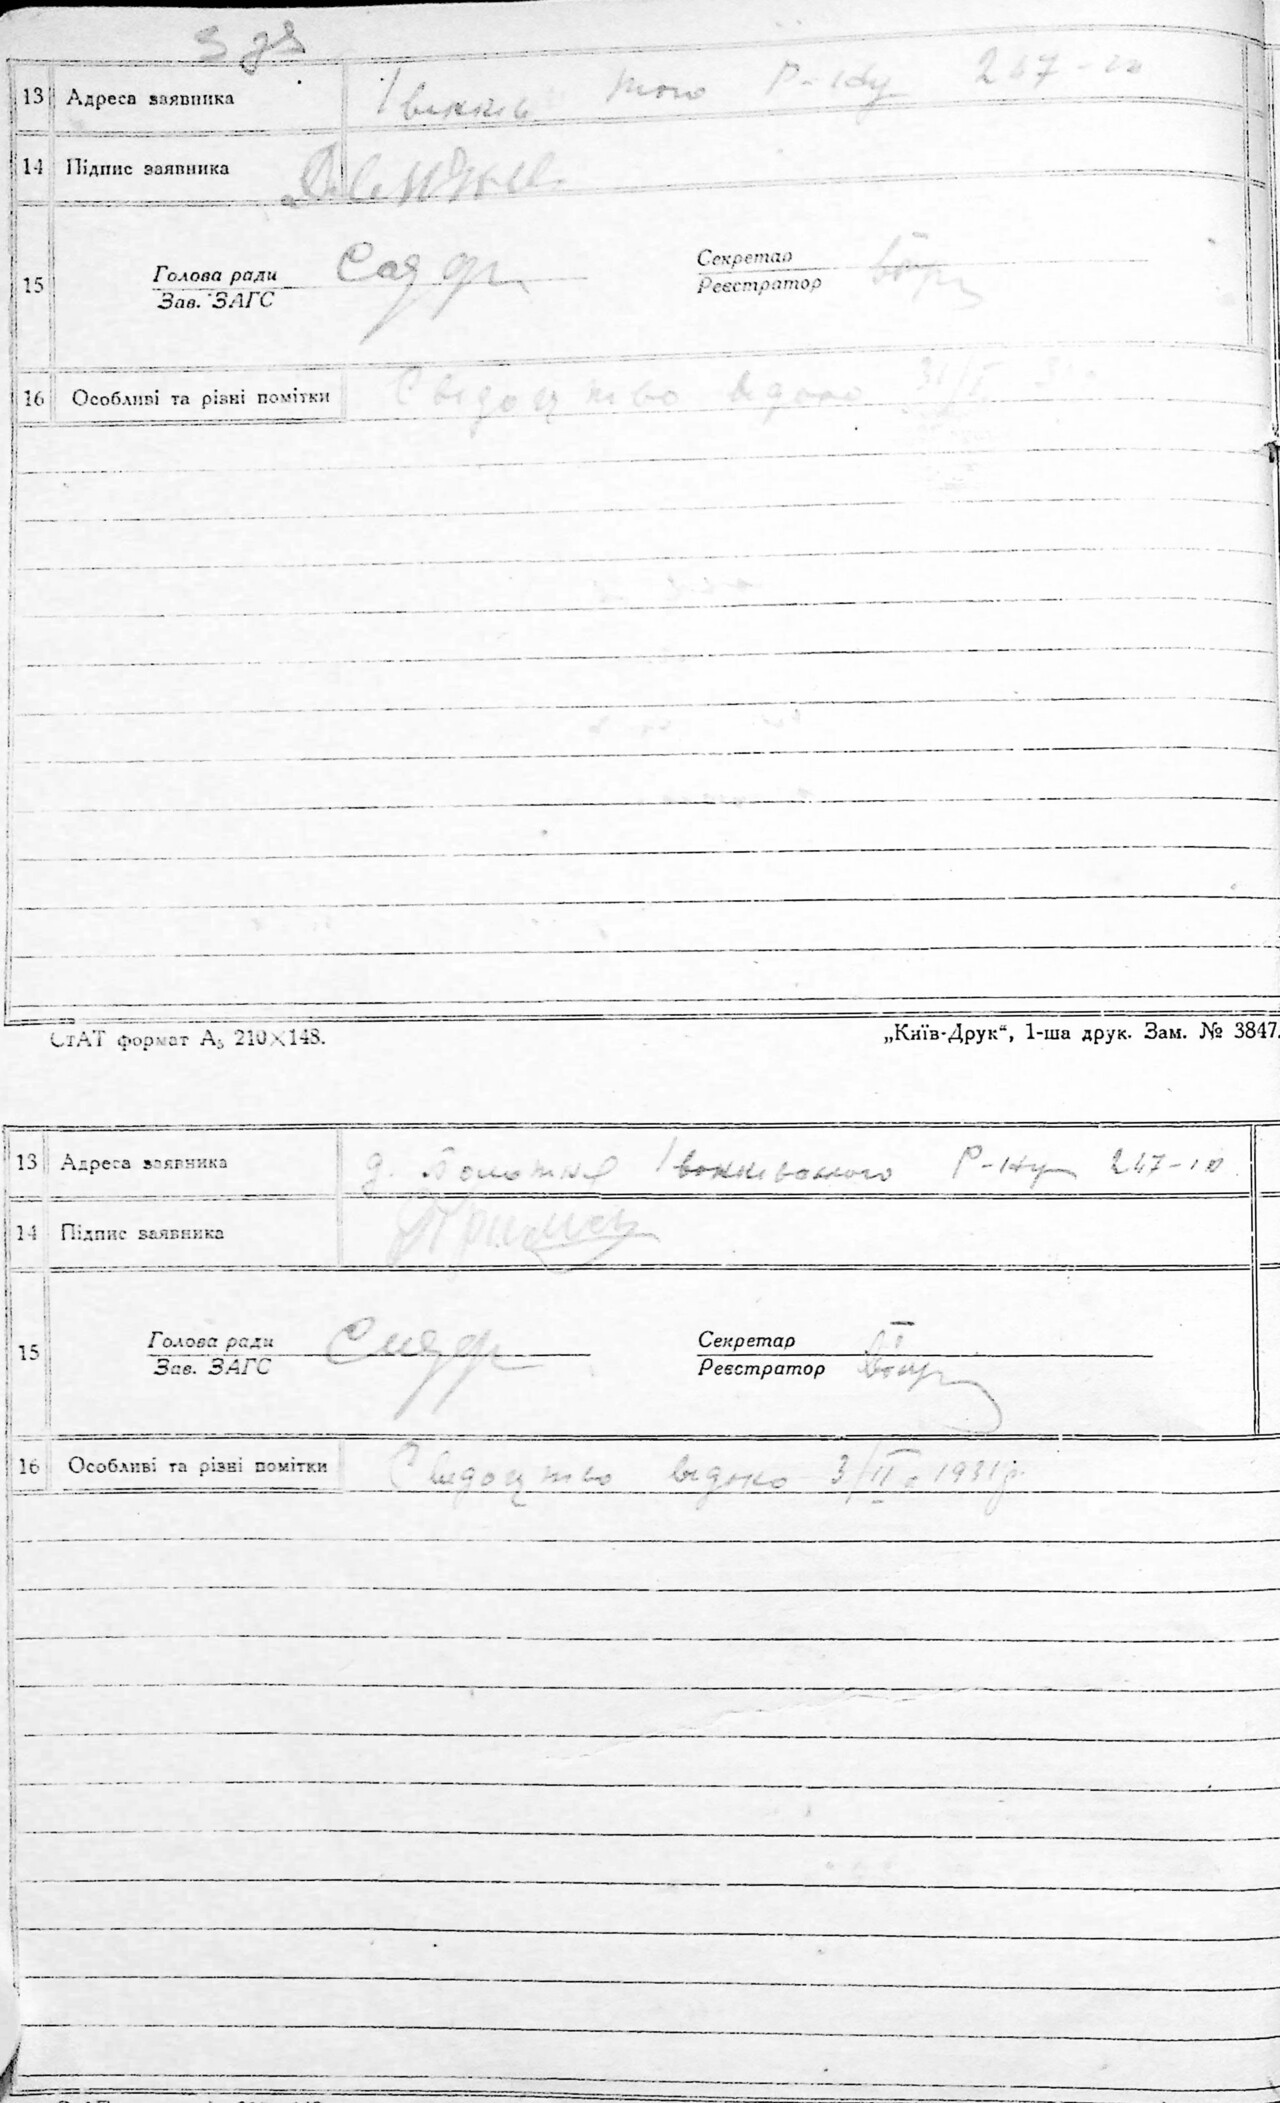 13 Адреса заявника Р-ну 247-
14 Підпис заявника
15 Голова ради Секретар
Зав. ЗАГС Реєстратор
16 Особливі та різні помітки Свидоцтво видано 31/I
СтАТ формат А₅ 210×148. „Київ-Друк“, 1-ша друк. Зам. № 3847.
13 Адреса заявника д. Р-ну 247-
14 Підпис заявника
15 Голова ради Секретар
Зав. ЗАГС Реєстратор
16 Особливі та різні помітки Свидоцтво видано 3/II 1931р.